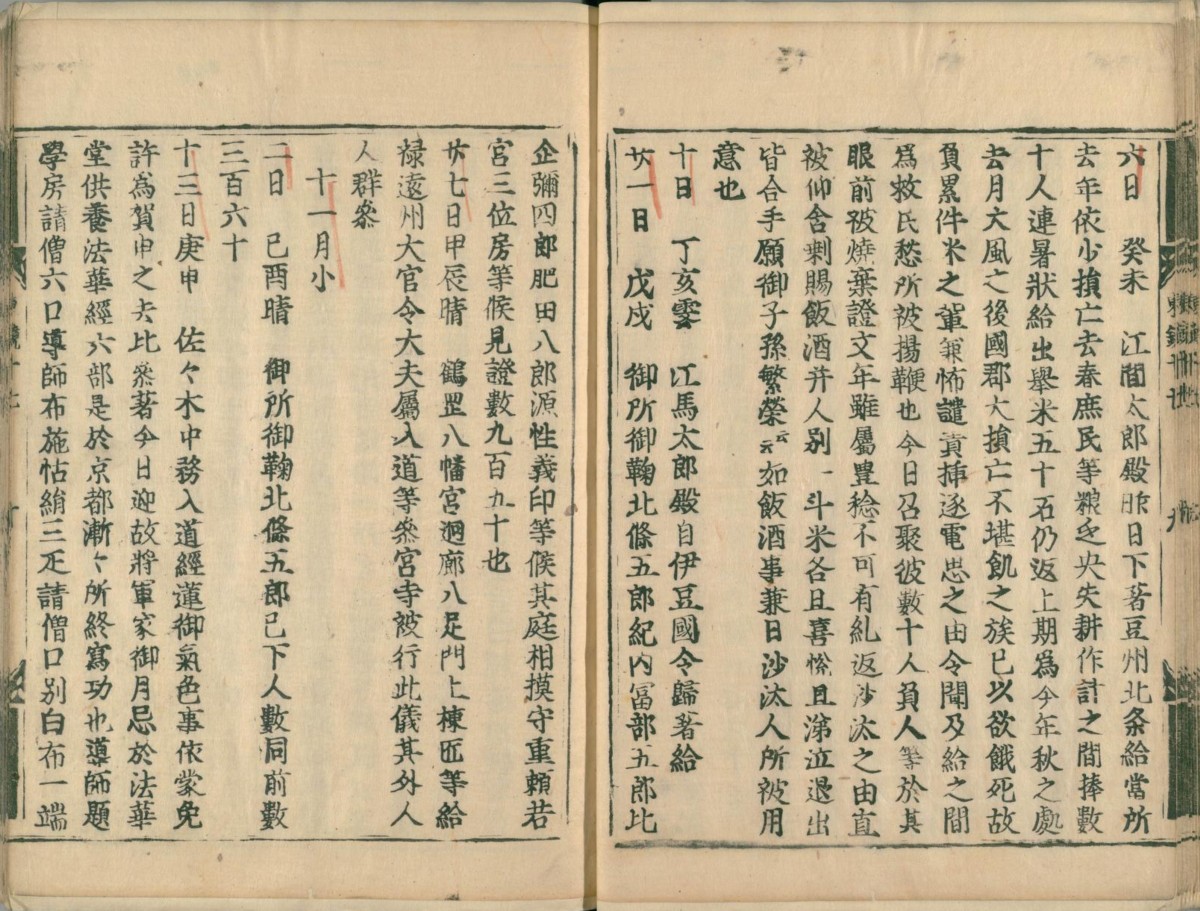 六日　癸未　江間太郎殿昨日下著豆州北条給當所
去年依少損亡去春庶民等粮乏央失耕作計之間捧數
十人連署狀給出擧米五十石仍返上期爲今年秋之處
去月大風之後國郡大損亡不堪飢之族已以欲餓死故
負累件米之輩兼怖譴責挿逐電思之由令聞及給之間
爲救民愁所被揚鞭也今日召聚彼數十人負人等於其
眼前被燒棄證文年雖屬豊稔不可有糺返沙汰之由直
被仰含剰賜飯酒并人別一斗米各且喜悦且涕泣退出
皆合手願御子孫繁榮云云如飯酒事兼日沙汰人所被用
意也
十日　丁亥霽　江馬太郎殿自伊豆國令歸著給
廿一日　戊戌　御所御鞠北條五郎紀内冨部五郎比
企彌四郎肥田八郎源性義印等候其庭相摸守重頼若
宮三位房等候見證數九百九十也
廿七日甲辰晴　鶴罡八幡宮廻廊八足門上棟匠等給
禄遠州大官令大夫属入道等參宮寺被行此儀其外人
人群參
十一月小
二日　己酉晴　御所御鞠北條五郎已下人數同前數
三百六十
十三日庚申　佐々木中務入道經蓮御氣色事依蒙免
許爲賀申之去比參著今日迎故將軍家御月忌於法華
堂供養法華經六部是於京都漸々所終寫功也導師題
學房請僧六口導師布施帖絹三疋請僧口別白布一端